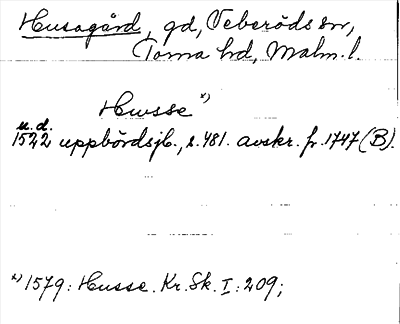 Husagård, gd, Veberöds sn,
Torna hd, Malm. l.
Hwsse x)
u. d.
1522 uppbördsjb., s. 481. avskr. fr. 1747 (B).
x) 1579: Husse. Kr. Sk. I: 209;